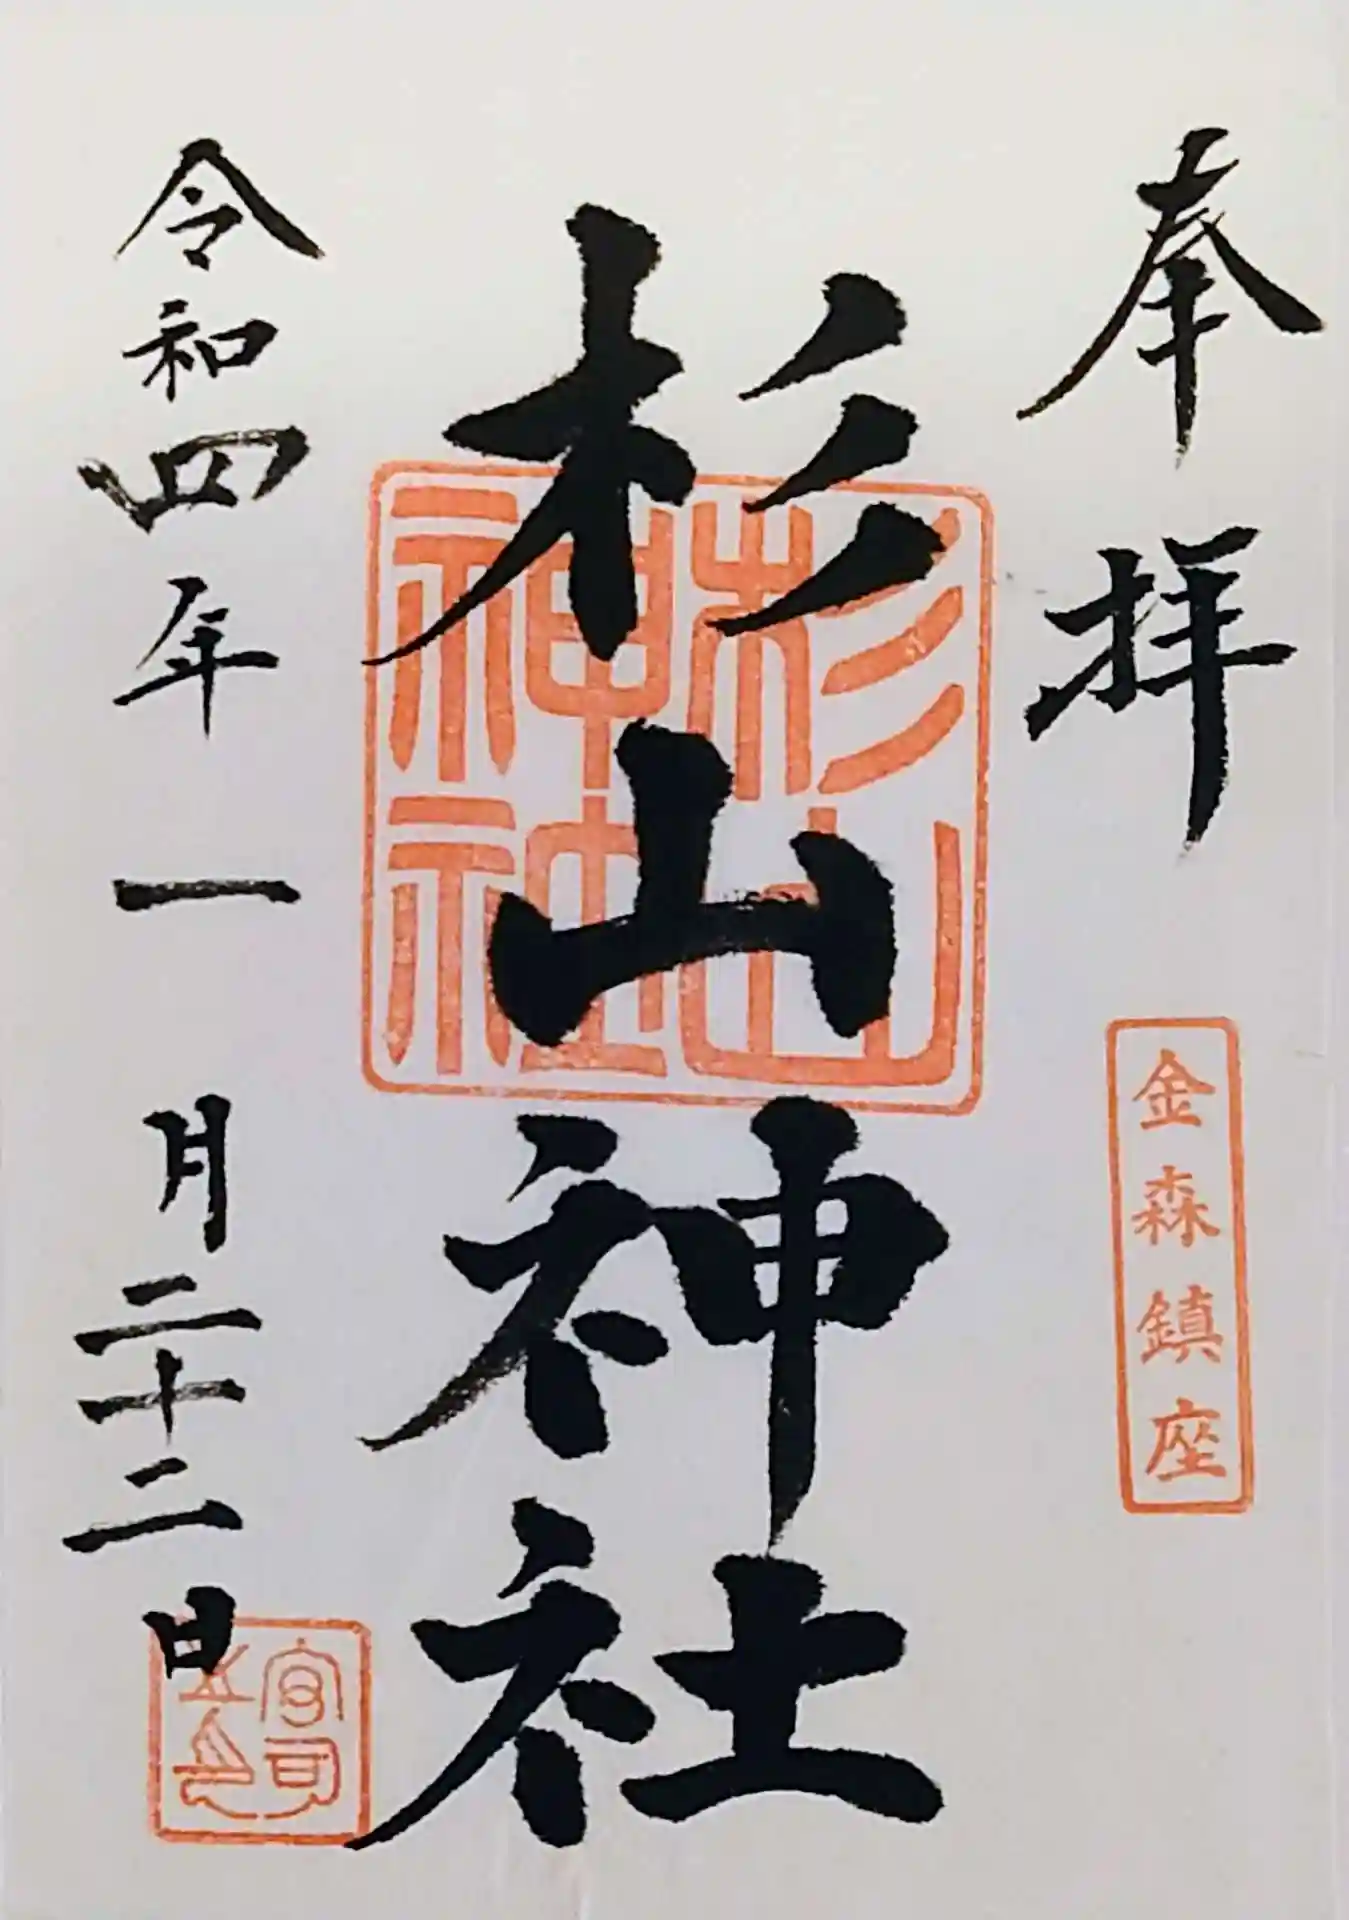 奉拝
金森鎮座
杉山神社
杉山
神社
令和四年一月二十二日
宮司
之印